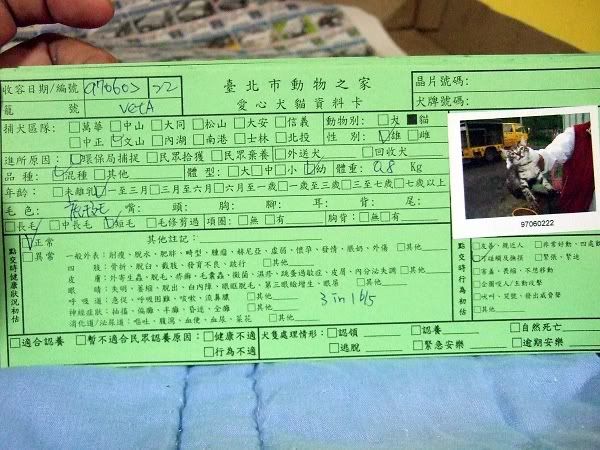 收容日期/編號 970603 22 臺北市動物之家 晶片號碼:
籠 號 VetA 愛心犬貓資料卡 犬牌號碼:
捕犬區隊: □萬華 □中山 □大同 □松山 □大安 □信義 動物別: □犬 ■貓
□中正 □文山 □內湖 □南港 □士林 □北投 性 別: □雄 □雌
進所原因: □環保局捕捉 □民眾拾獲 □民眾棄養 □外送犬 □回收犬
品 種: □混種 □其他 體 型: □大 □中 □小 □幼 體重: 0.8 Kg
年齡: □未離乳 □一至三月 □三月至六月 □六月至一歲 □一歲至三歲 □三歲至七歲 □七歲以上
毛 色: 虎斑 嘴: 頭: 胸: 腳: 耳: 背: 尾:
□長毛 □中長毛 □短毛 □毛修剪過 項圈: □無 □有 胸背: □無 □有
點交時健康狀況初估
□正常 其他註記:
□異常 一般外表: 削瘦、脫水、肥胖、畸型、腫瘤、赫尼亞、虛弱、懷孕、發情、脹奶、外傷 □其他
四 肢: 骨折、脫臼、截肢、發育不良、跛行 □其他
皮 膚: 外寄生蟲、脫毛、疥癬、毛囊蟲、黴菌、濕疹、跳蚤過敏症、皮屑、內分泌失調 □其他
眼 睛: 失明、萎縮、脫出、白內障、眼瞼脫毛、第三眼瞼增生、眼屎 □其他
呼 吸 道: 急促、呼吸困難、咳嗽、流鼻膿 □其他
神經症狀: 抽搐、偏癱、半癱、昏迷、全癱 □其他
消化道/泌尿道: 嘔吐、腹瀉、血便、血尿、菜花 □其他
3 in 1 6/5
97060222
點交時行為初估
□友善、親近人 □非常好動、四處
□可碰觸撫摸 □緊張、緊迫
□害羞、畏縮、不想移動
□企圖咬人/主動攻擊
□吠叫、哭號、發出威脅聲
□其他
□適合認養 □暫不適合民眾認養原因: □健康不適 犬隻處理情形: □認領 □認養 □自然死亡
□行為不適 □逃脫 □緊急安樂 □逾期安樂